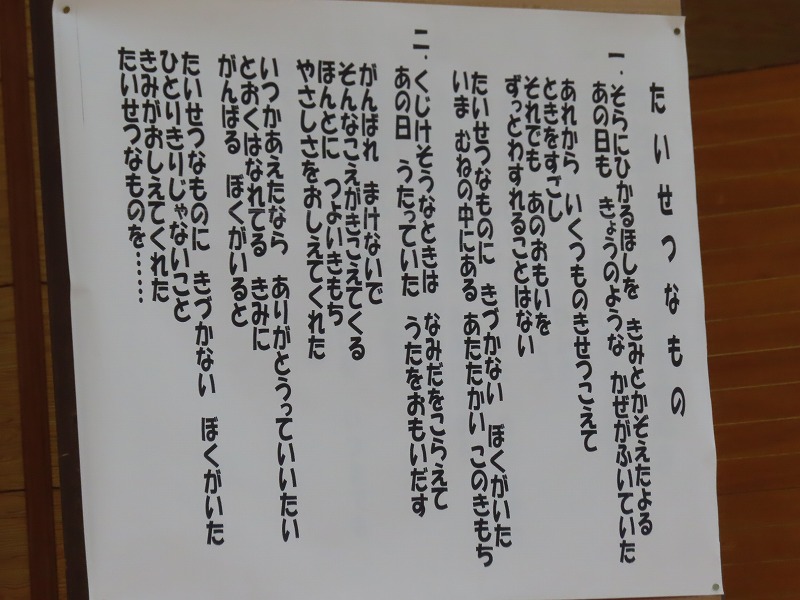 たいせつなもの
一．そらにひかるほしを　きみとかぞえたよる
あの日も　きょうのような　かぜがふいていた
あれから　いくつものきせつこえて
ときをすごし
それでも　あのおもいを
ずっとわすれることはない
たいせつなものに　きづかない　ぼくがいた
いま　むねの中にある　あたたかい　このきもち
二．くじけそうなときは　なみだをこらえて
あの日　うたっていた　うたをおもいだす
がんばれ　まけないで
そんなこえがきこえてくる
ほんとに　つよいきもち
やさしさをおしえてくれた
いつかあえたなら　ありがとうっていいたい
とおくはなれてる　きみに
がんばる　ぼくがいると
たいせつなものに　きづかない　ぼくがいた
ひとりきりじゃないこと
きみがおしえてくれた
たいせつなものを……